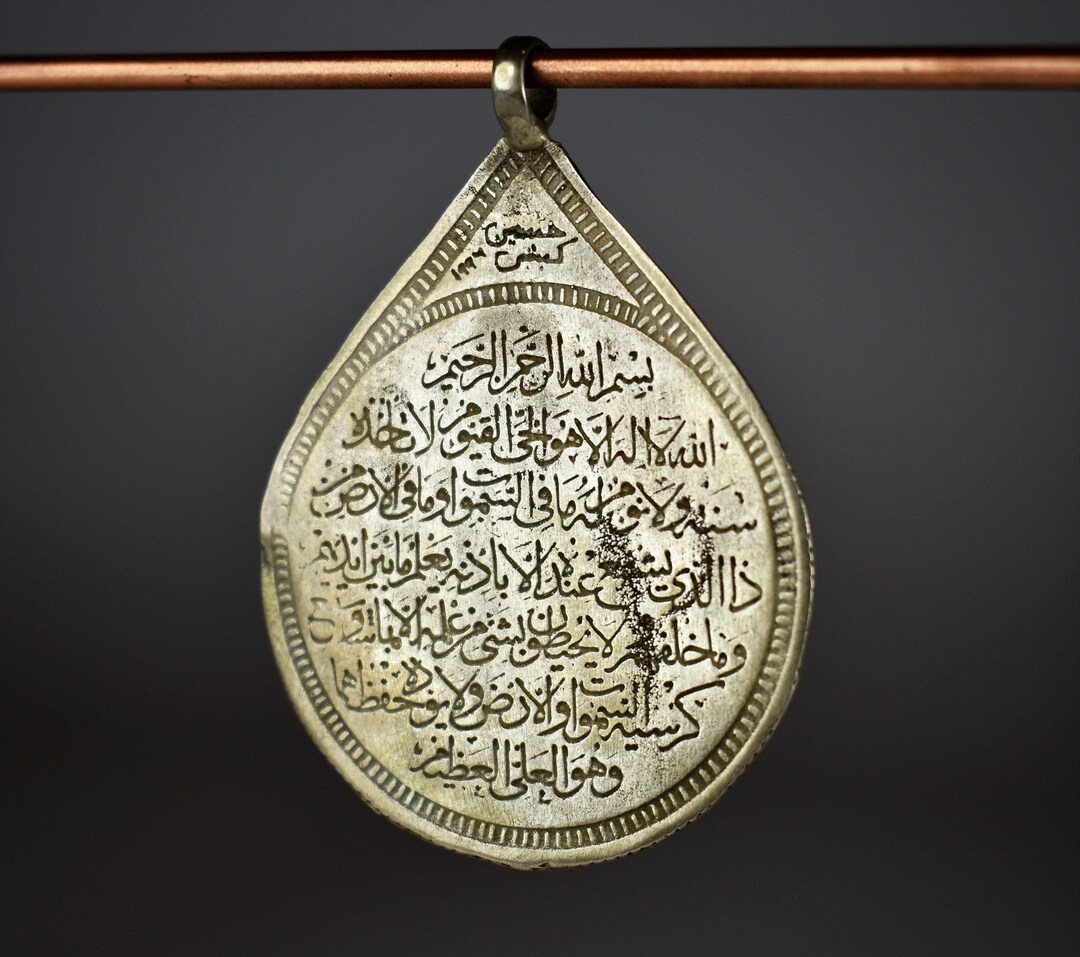 حسین
بسم الله الرحمن الرحیم
الله لا اله الا هو الحی القیوم لا تاخذه
سنة ولا نوم له ما فی السموات وما فی الارض من
ذا الذی یشفع عنده الا باذنه یعلم ما بین ایدیهم
وما خلفهم لا یحیطون بشئی من علمه الا بما شا وسع
کرسیه السموات والارض ولا یوده حفظهما
وهو العلی العظیم